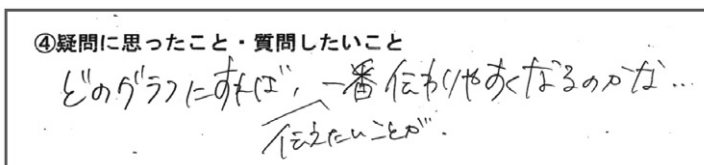 ④疑問に思ったこと・質問したいこと
どのグラフにすれば、一番伝わりやすくなるのかな…
伝えたいことが.